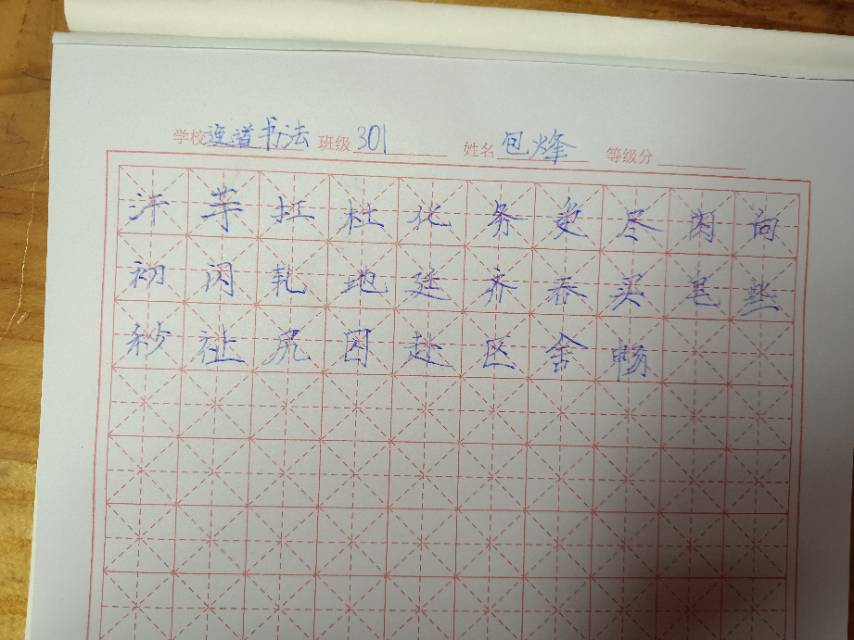 学校 连道书法 班级 301 姓名 包烽 等级分
汗 芋 扛 杜 化 务 免 尽 闲 向
初 闪 轧 地 廷 齐 吞 买 皂 些
秒 社 尻 囚 赴 区 舍 畅